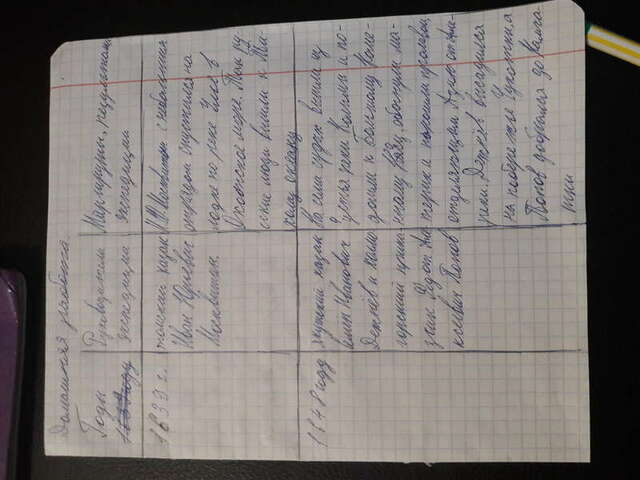 Домашняя работа.
Годы
1639году
Руководители
экспедиции
Маршруты, результаты
экспедиции
1639 г.
томский казак
Иван Юрьевич
Москвитин.
И.Ю. Москвитин с небольшим
отрядом спустился на
лодке по реке Улье в
Охотское море. Так ру-
сские люди вышли к Ти-
хому океану
1648 году
якутский казак
Семён Иванович
Дежнев и холмо-
горский прика-
зчик Федот Але-
ксеевич Попов
На семи судах вышли из
Устья реки Колымы и по-
дошли к Большому Каме-
нному
обогнули ма-
терик и прошли проливом,
отделяющим Азию от Аме-
рики. Дежнёв высадился
на побережье Чукотки, а
Попов добрался до Камча-
тки